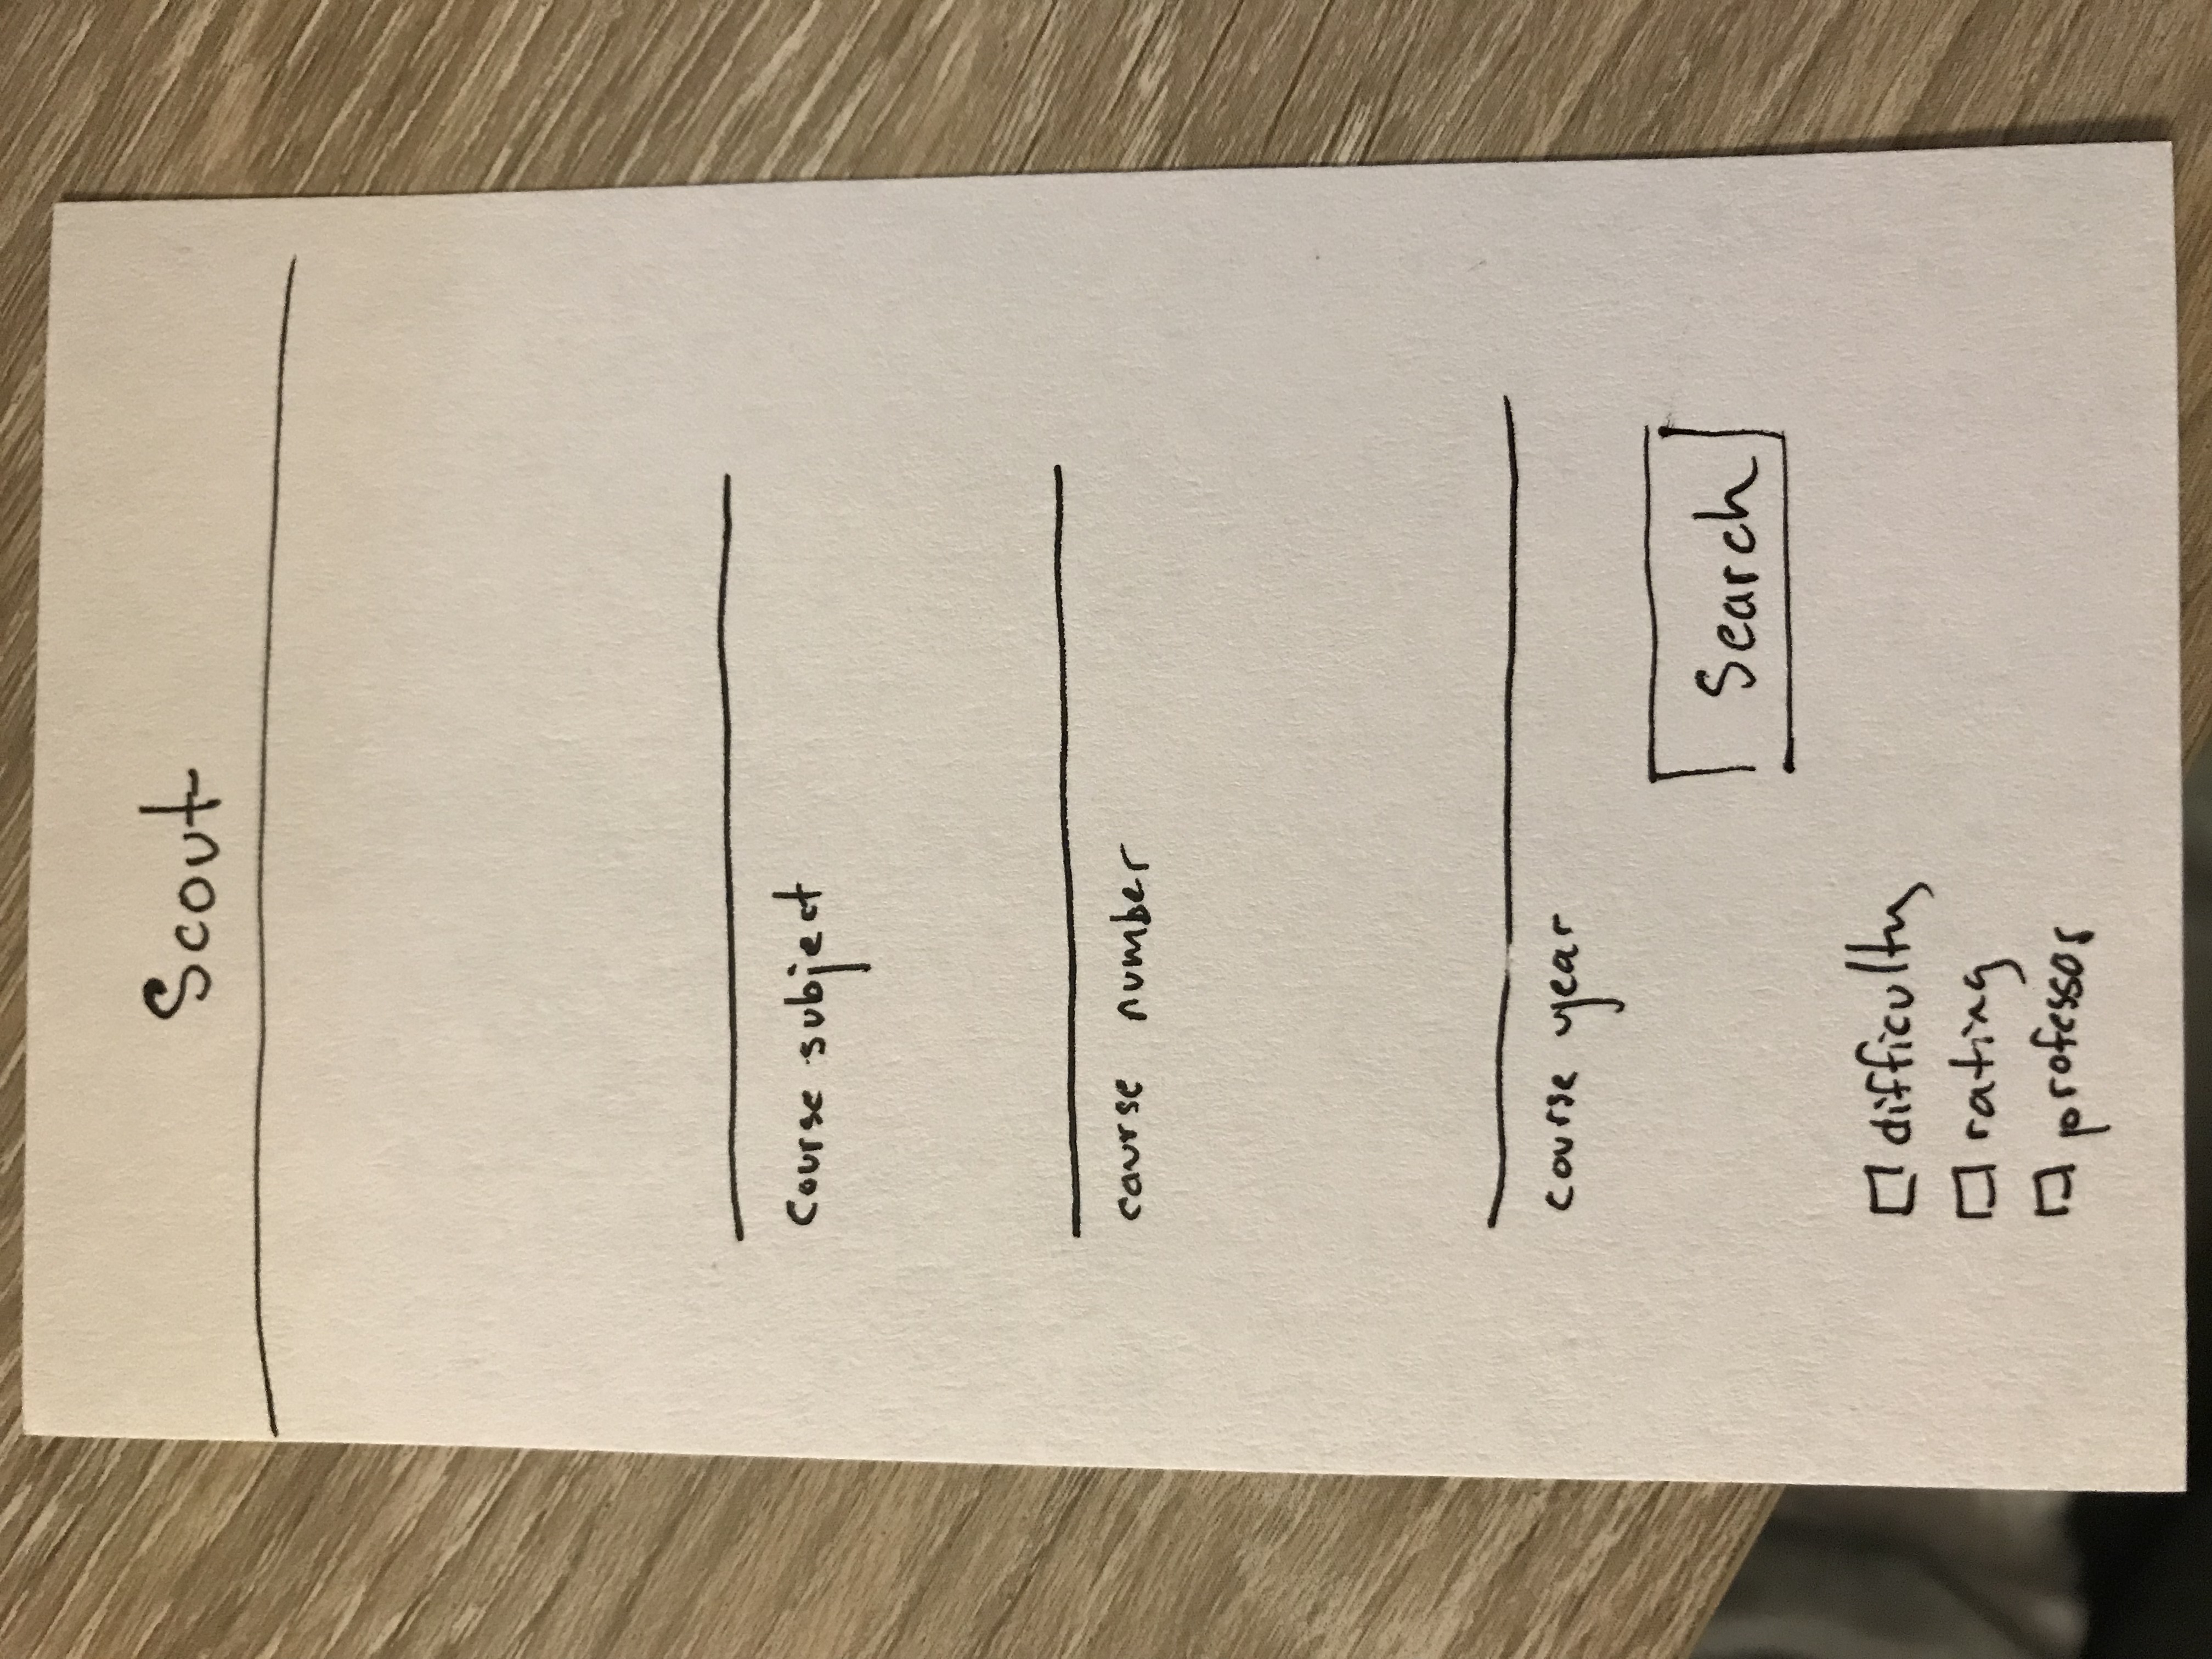 Scout
Course subject
course number
course year
Search
difficulty
rating
professor